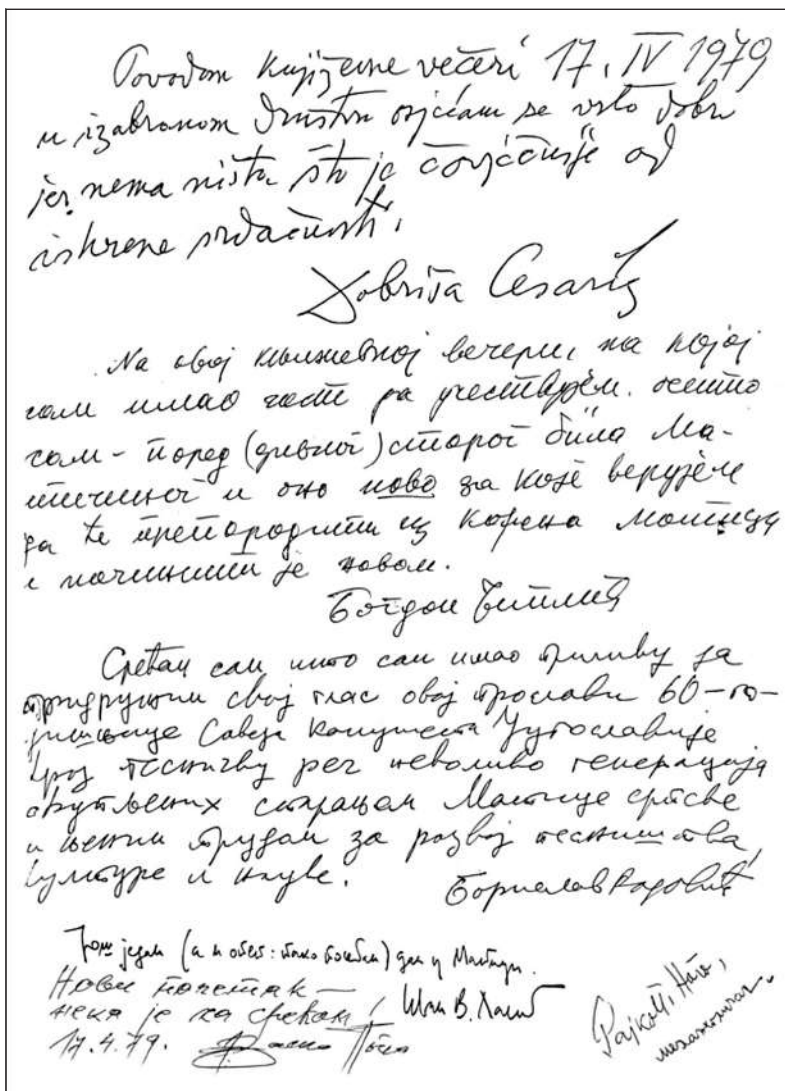 Povodom književne večeri 17. IV 1979
u izabranom društvu osjećam se vrlo dobro
jer nema ništa što je čovječnije od
iskrene srdačnosti.
Dobriša Cesarić
Na овој књижевној вечери, на којој
сам имао част да учествујем. осетио
сам - поред (дивног) старог била Ма-
тичиног и оно ново за које верујем
да ће препородити из корена Матицу
и начинити је новом.
Богдан Чиплић
Срећан сам што сам имао прилику да
придружим свој глас овој прослави 60-го-
дишњице Савеза комуниста Југославије
кроз песничку реч неколико генерација
окупљених старањем Матице српске
и њеним трудом за развој песништва,
културе и науке.
Борислав Радовић
Још један (а и опет: тако посебан) дан у Матици.
Нови почетак —
нека је са срећом!
Иван В. Лалић
17.4.79.